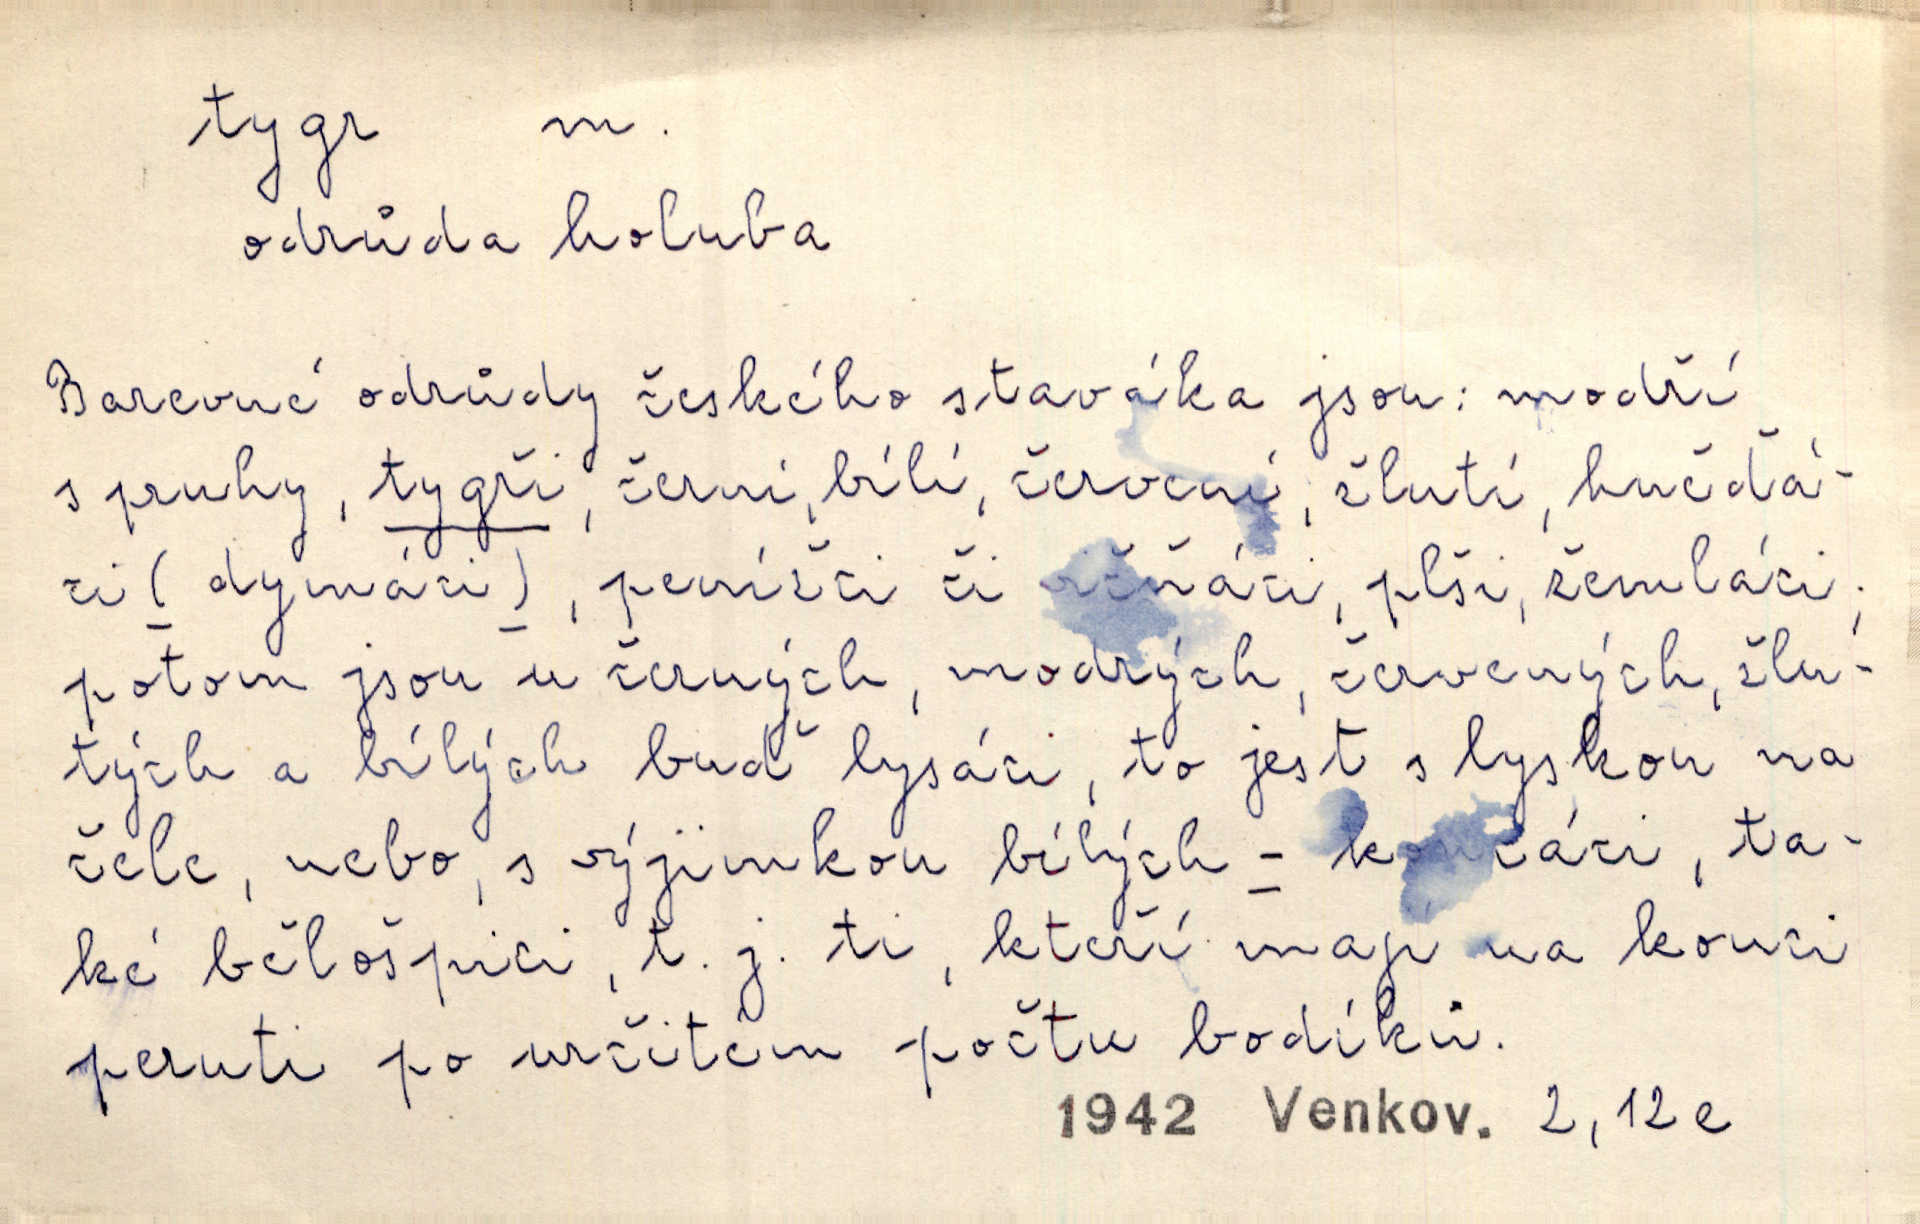 tygr m.
odrůda holuba
Barevné odrůdy českého staváka jsou: modří
s pruhy, tygři, černí, bílí, červení, žlutí, hněďá-
ci (dymáci), penížci či , plši, žemláci;
potom jsou u černých, modrých, červených, žlu-
tých a bílých buď lysáci, to jest s lyskou na
čele, nebo, s výjimkou bílých = , ta-
ké bělošpici, t. j. ti, kteří maji na konci
peruti po určitém počtu bodíků.
1942 Venkov. 2, 12 e